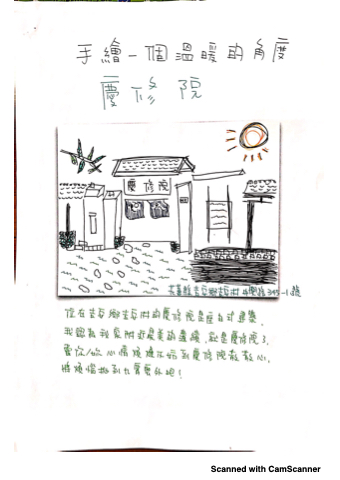 手繪一個溫暖的角度
慶修院
慶修院
花蓮縣吉安鄉吉安村中興路345-1號
位在吉安鄉吉安村的慶修院是座日式建築,
我認為我家附近最美的建築,就是慶修院了,
當你/妳心情煩燥
到慶修院散散心,
將煩惱拋到九霄雲外吧!
Scanned with CamScanner